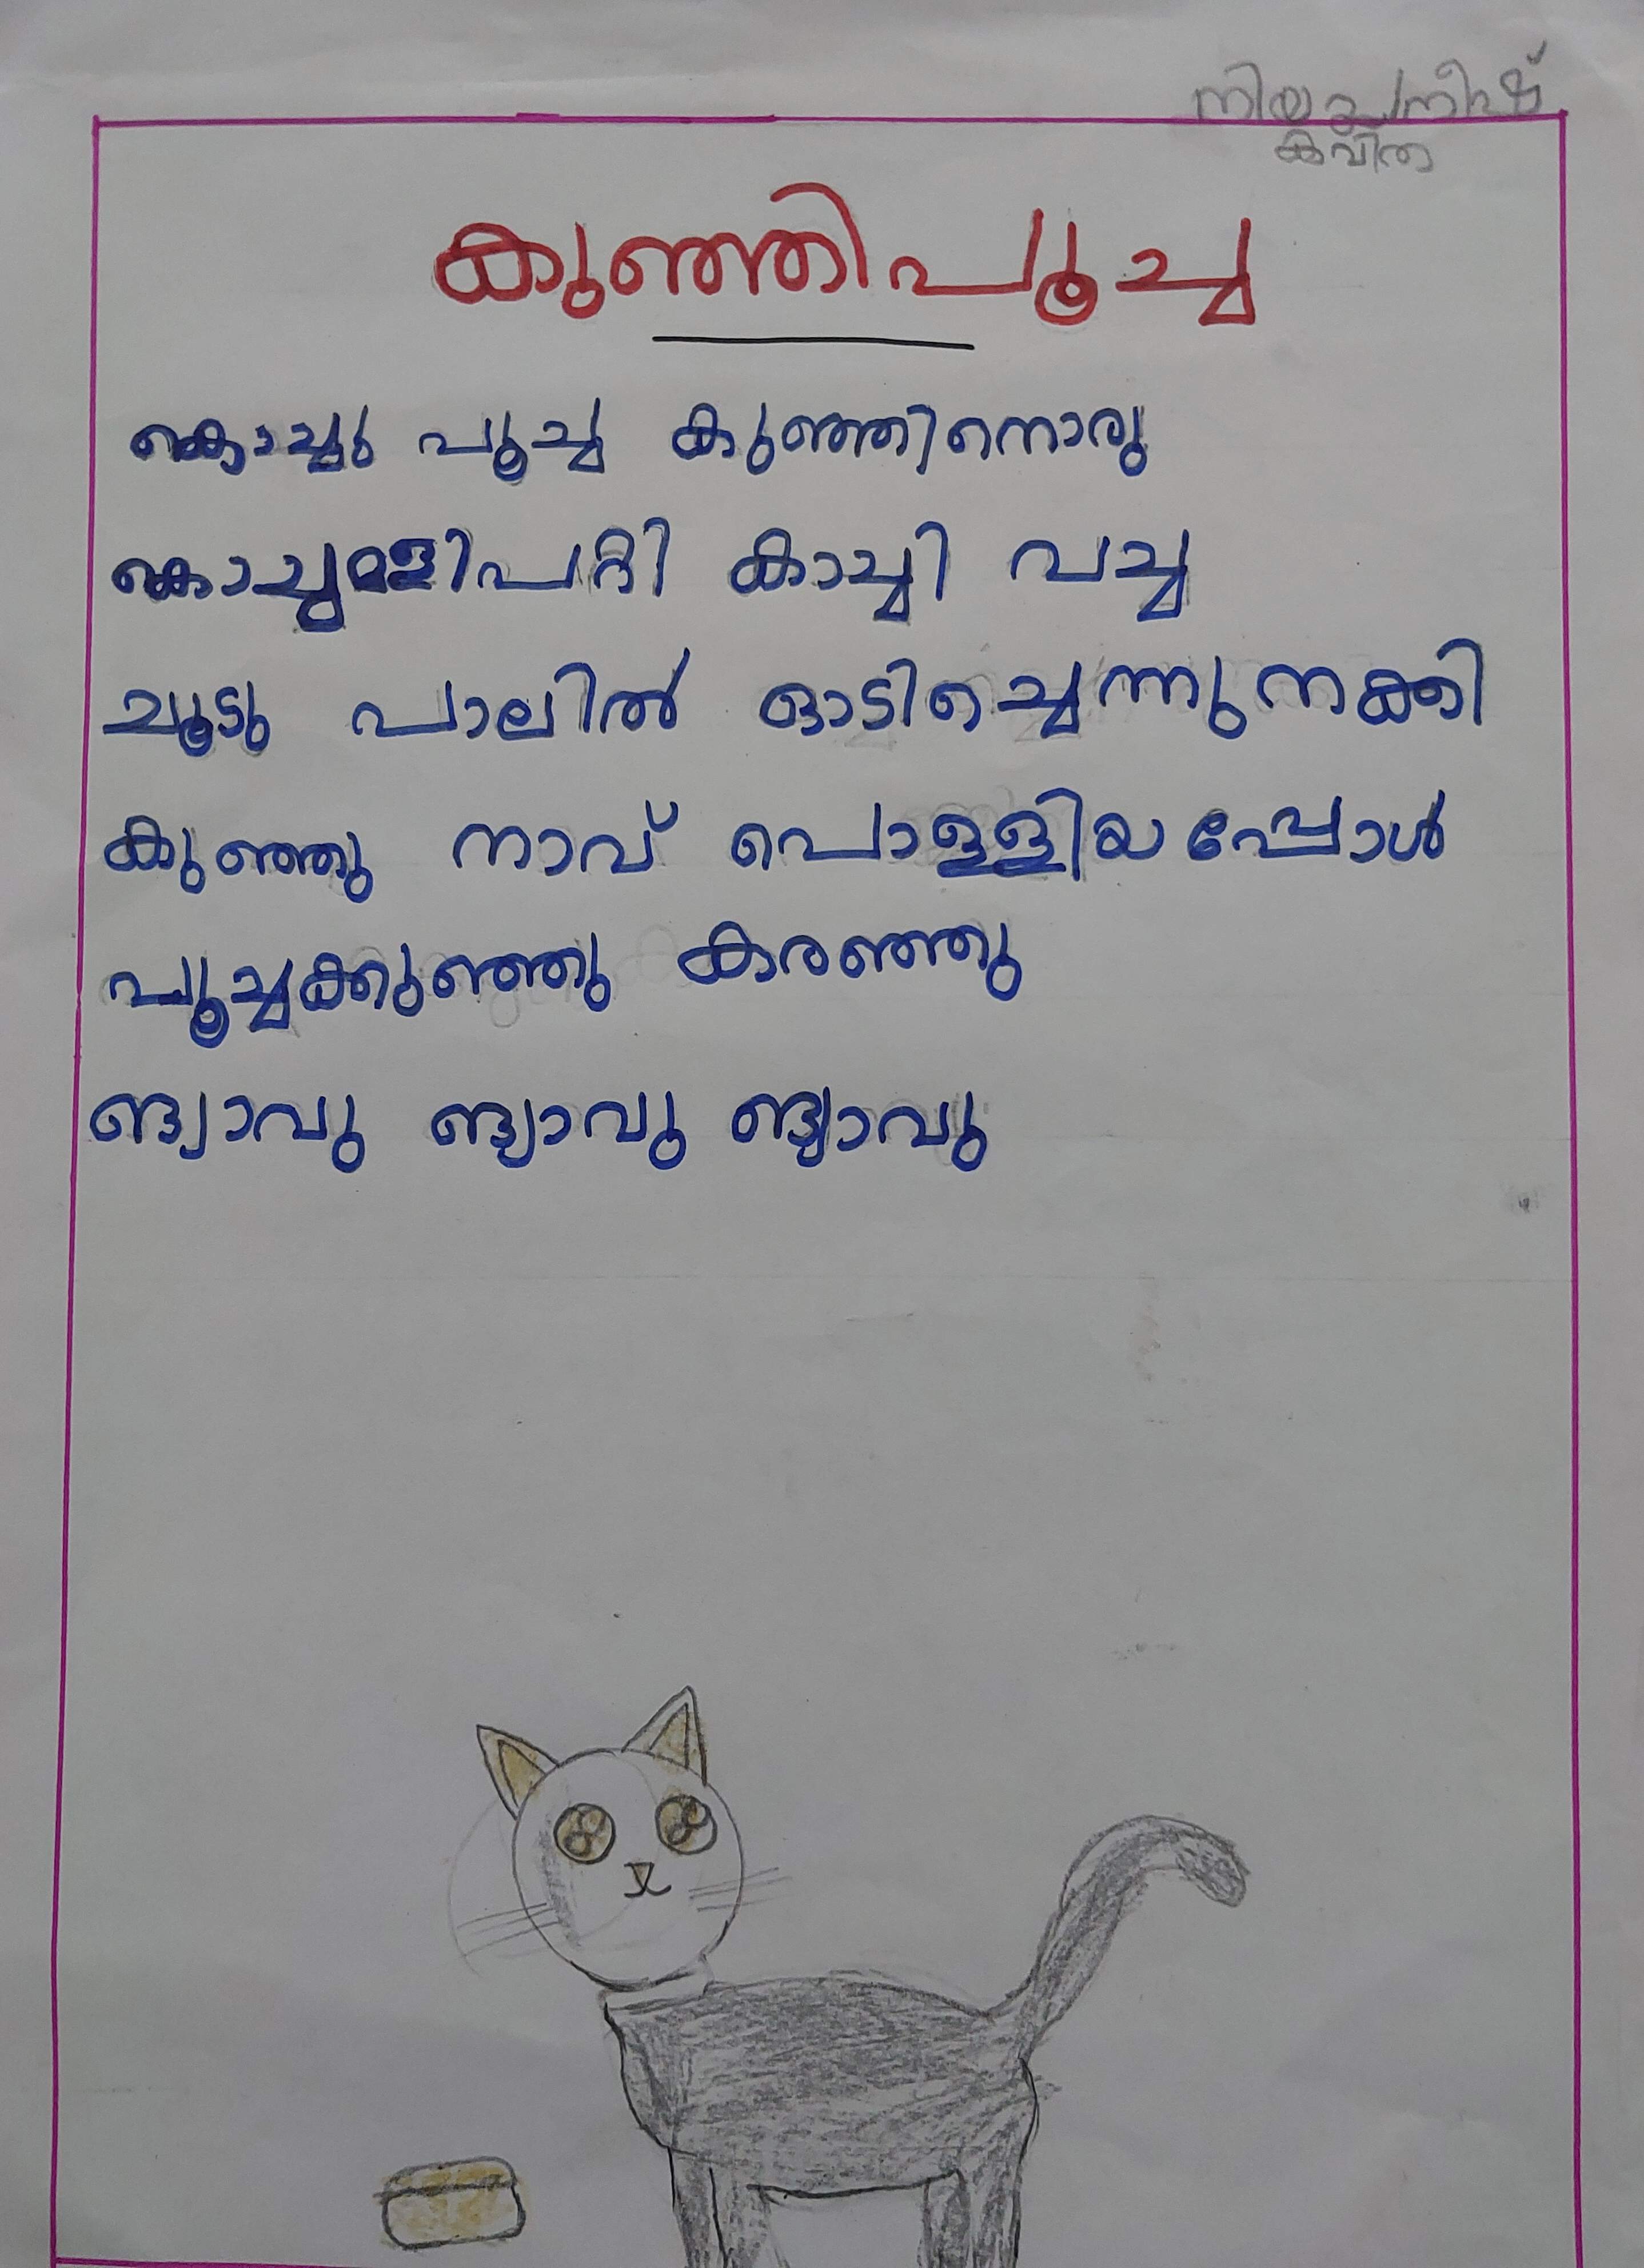 കവിത
കുഞ്ഞിപൂച്ച
കൊച്ചു പൂച്ച കുഞ്ഞിനൊരു
കാച്ചി വച്ച
ചൂടു പാലിൽ ഓടിച്ചെന്നുനക്കി
കുഞ്ഞു നാവ് പൊള്ളിയപ്പോൾ
പൂച്ചക്കുഞ്ഞു കരഞ്ഞു
ങ്യാവു ങ്യാവൂ ങ്യാവു